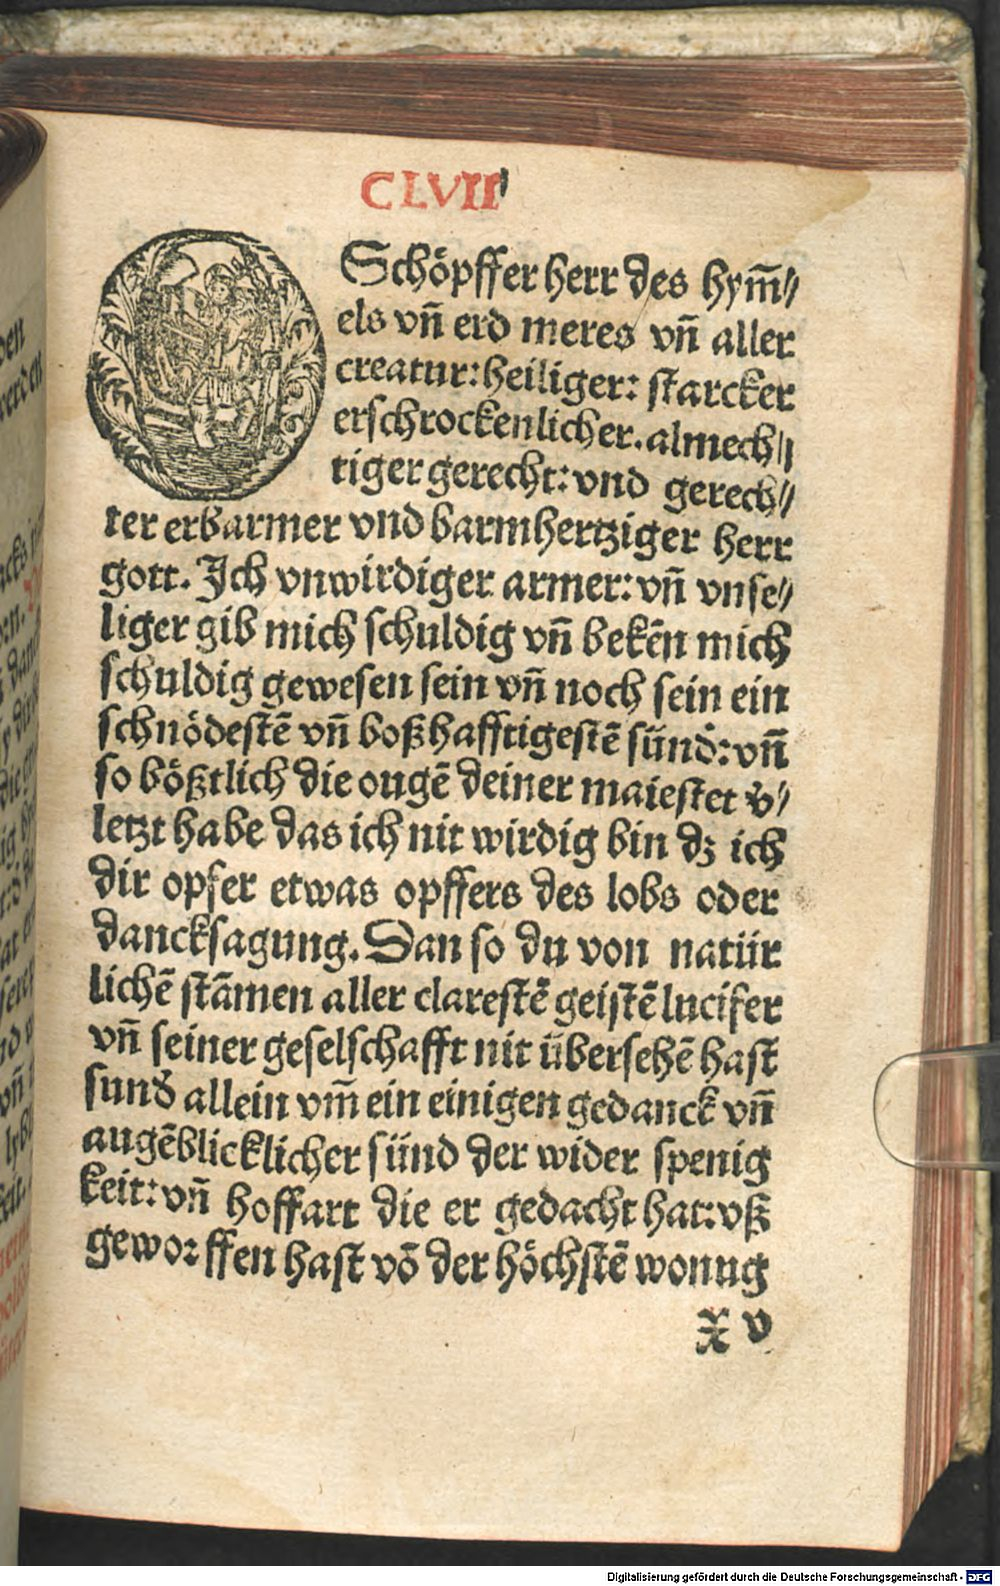 CLVII
O Schöpffer herr des hym̄⸗
els vn̄ erd meres vn̄ aller
creatur: heiliger: starcker
erschrockenlicher. almech⸗
tiger gerecht: vnd gerech⸗
ter erbarmer vnd barmhertziger herr
gott. Ich vnwirdiger armer: vn̄ vnse⸗
liger gib mich schuldig vn̄ bekēn mich
schuldig gewesen sein vn̄ noch sein ein
schnödestē vn̄ boßhafftigestē sünd̛: vn̄
so bößtlich die ougē deiner maiestet v̛⸗
letzt habe das ich nit wirdig bin dz ich
dir opfer etwas opffers des lobs oder
dancksagung. Dan so du von natür
lichē stāmen aller clarestē geistē lucifer
vn̄ seiner geselschafft nit übersehē hast
sund̛ allein vm̄ ein einigen gedanck vn̄
augēblicklicher sünd der wider spenig
keit: vn̄ hoffart die er gedacht hat: vß
geworffen hast vō der höchstē wonug
x v
Digitalisierung gefördert durch die Deutsche Forschungsgemeinschaft - DFG